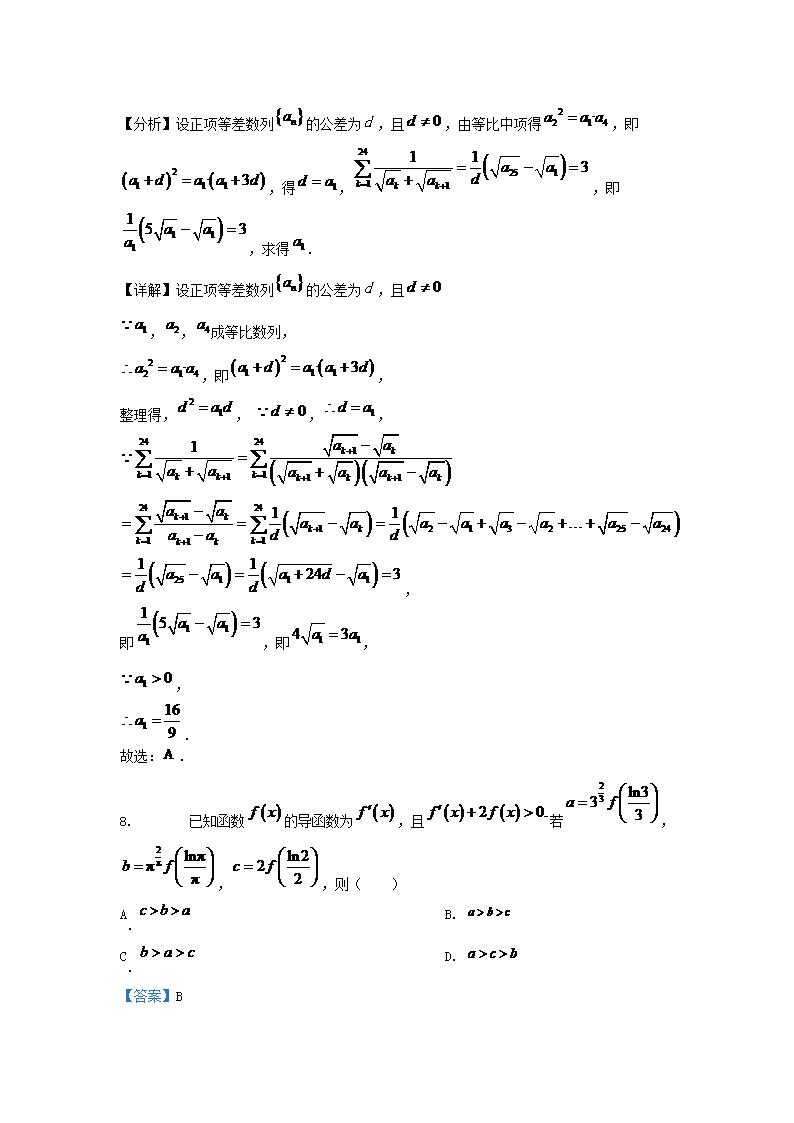 【分析】设正项等差数列{aₙ}的公差为d,且d≠0,由等比中项得a₂²=a₁·a₄,即
(a₁+d)²=a₁·(a₁+3d),得d=a₁,∑_{k=1}^{24} 1/(√a_k+√a_{k+1})=1/d(√a₂₅−√a₁)=3,即
1/a₁(5√a₁−√a₁)=3,求得a₁.
【详解】设正项等差数列{aₙ}的公差为d,且d≠0
∵a₁,a₂,a₄成等比数列,
∴a₂²=a₁·a₄,即(a₁+d)²=a₁(a₁+3d),
整理得,d²=a₁d, ∵d≠0,∴d=a₁,
∵∑_{k=1}^{24} 1/(√a_k+√a_{k+1})=∑_{k=1}^{24} (√a_{k+1}−√a_k)/((√a_{k+1}+√a_k)(√a_{k+1}−√a_k))
=∑_{k=1}^{24} (√a_{k+1}−√a_k)/(a_{k+1}−a_k)=∑_{k=1}^{24} 1/d(√a_{k+1}−√a_k)=1/d(√a₂−√a₁+√a₃−√a₂+…+√a₂₅−√a₂₄)
=1/d(√a₂₅−√a₁)=1/d(√(a₁+24d)−√a₁)=3,
即1/a₁(5√a₁−√a₁)=3,即4√a₁=3a₁,
∵a₁>0,
∴a₁=16/9.
故选:A.
8. 已知函数f(x)的导函数为f′(x),且f′(x)+2f(x)>0.若a=3^{2/3}f(ln3/3),
b=π^{2/π}f(lnπ/π),c=2f(ln2/2),则( )
A. c>b>a B. a>b>c
C. b>a>c D. a>c>b
【答案】B